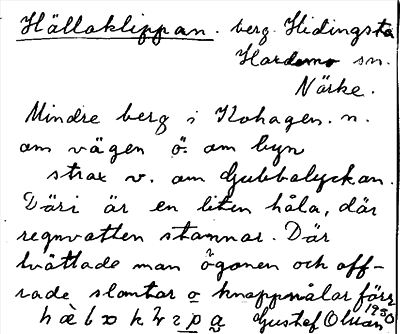 Hällaklippan. berg. Hidingsta
Hardemo sn.
Närke.
Mindre berg i Kohagen. n.
om vägen ö. om byn
strax v. om Gubbalyckan.
Däri är en liten håla, där
regnvatten stannar. Där
tvättade man ögonen och off-
rade slantar o knappnålar förr
1930
Gustaf Olsson